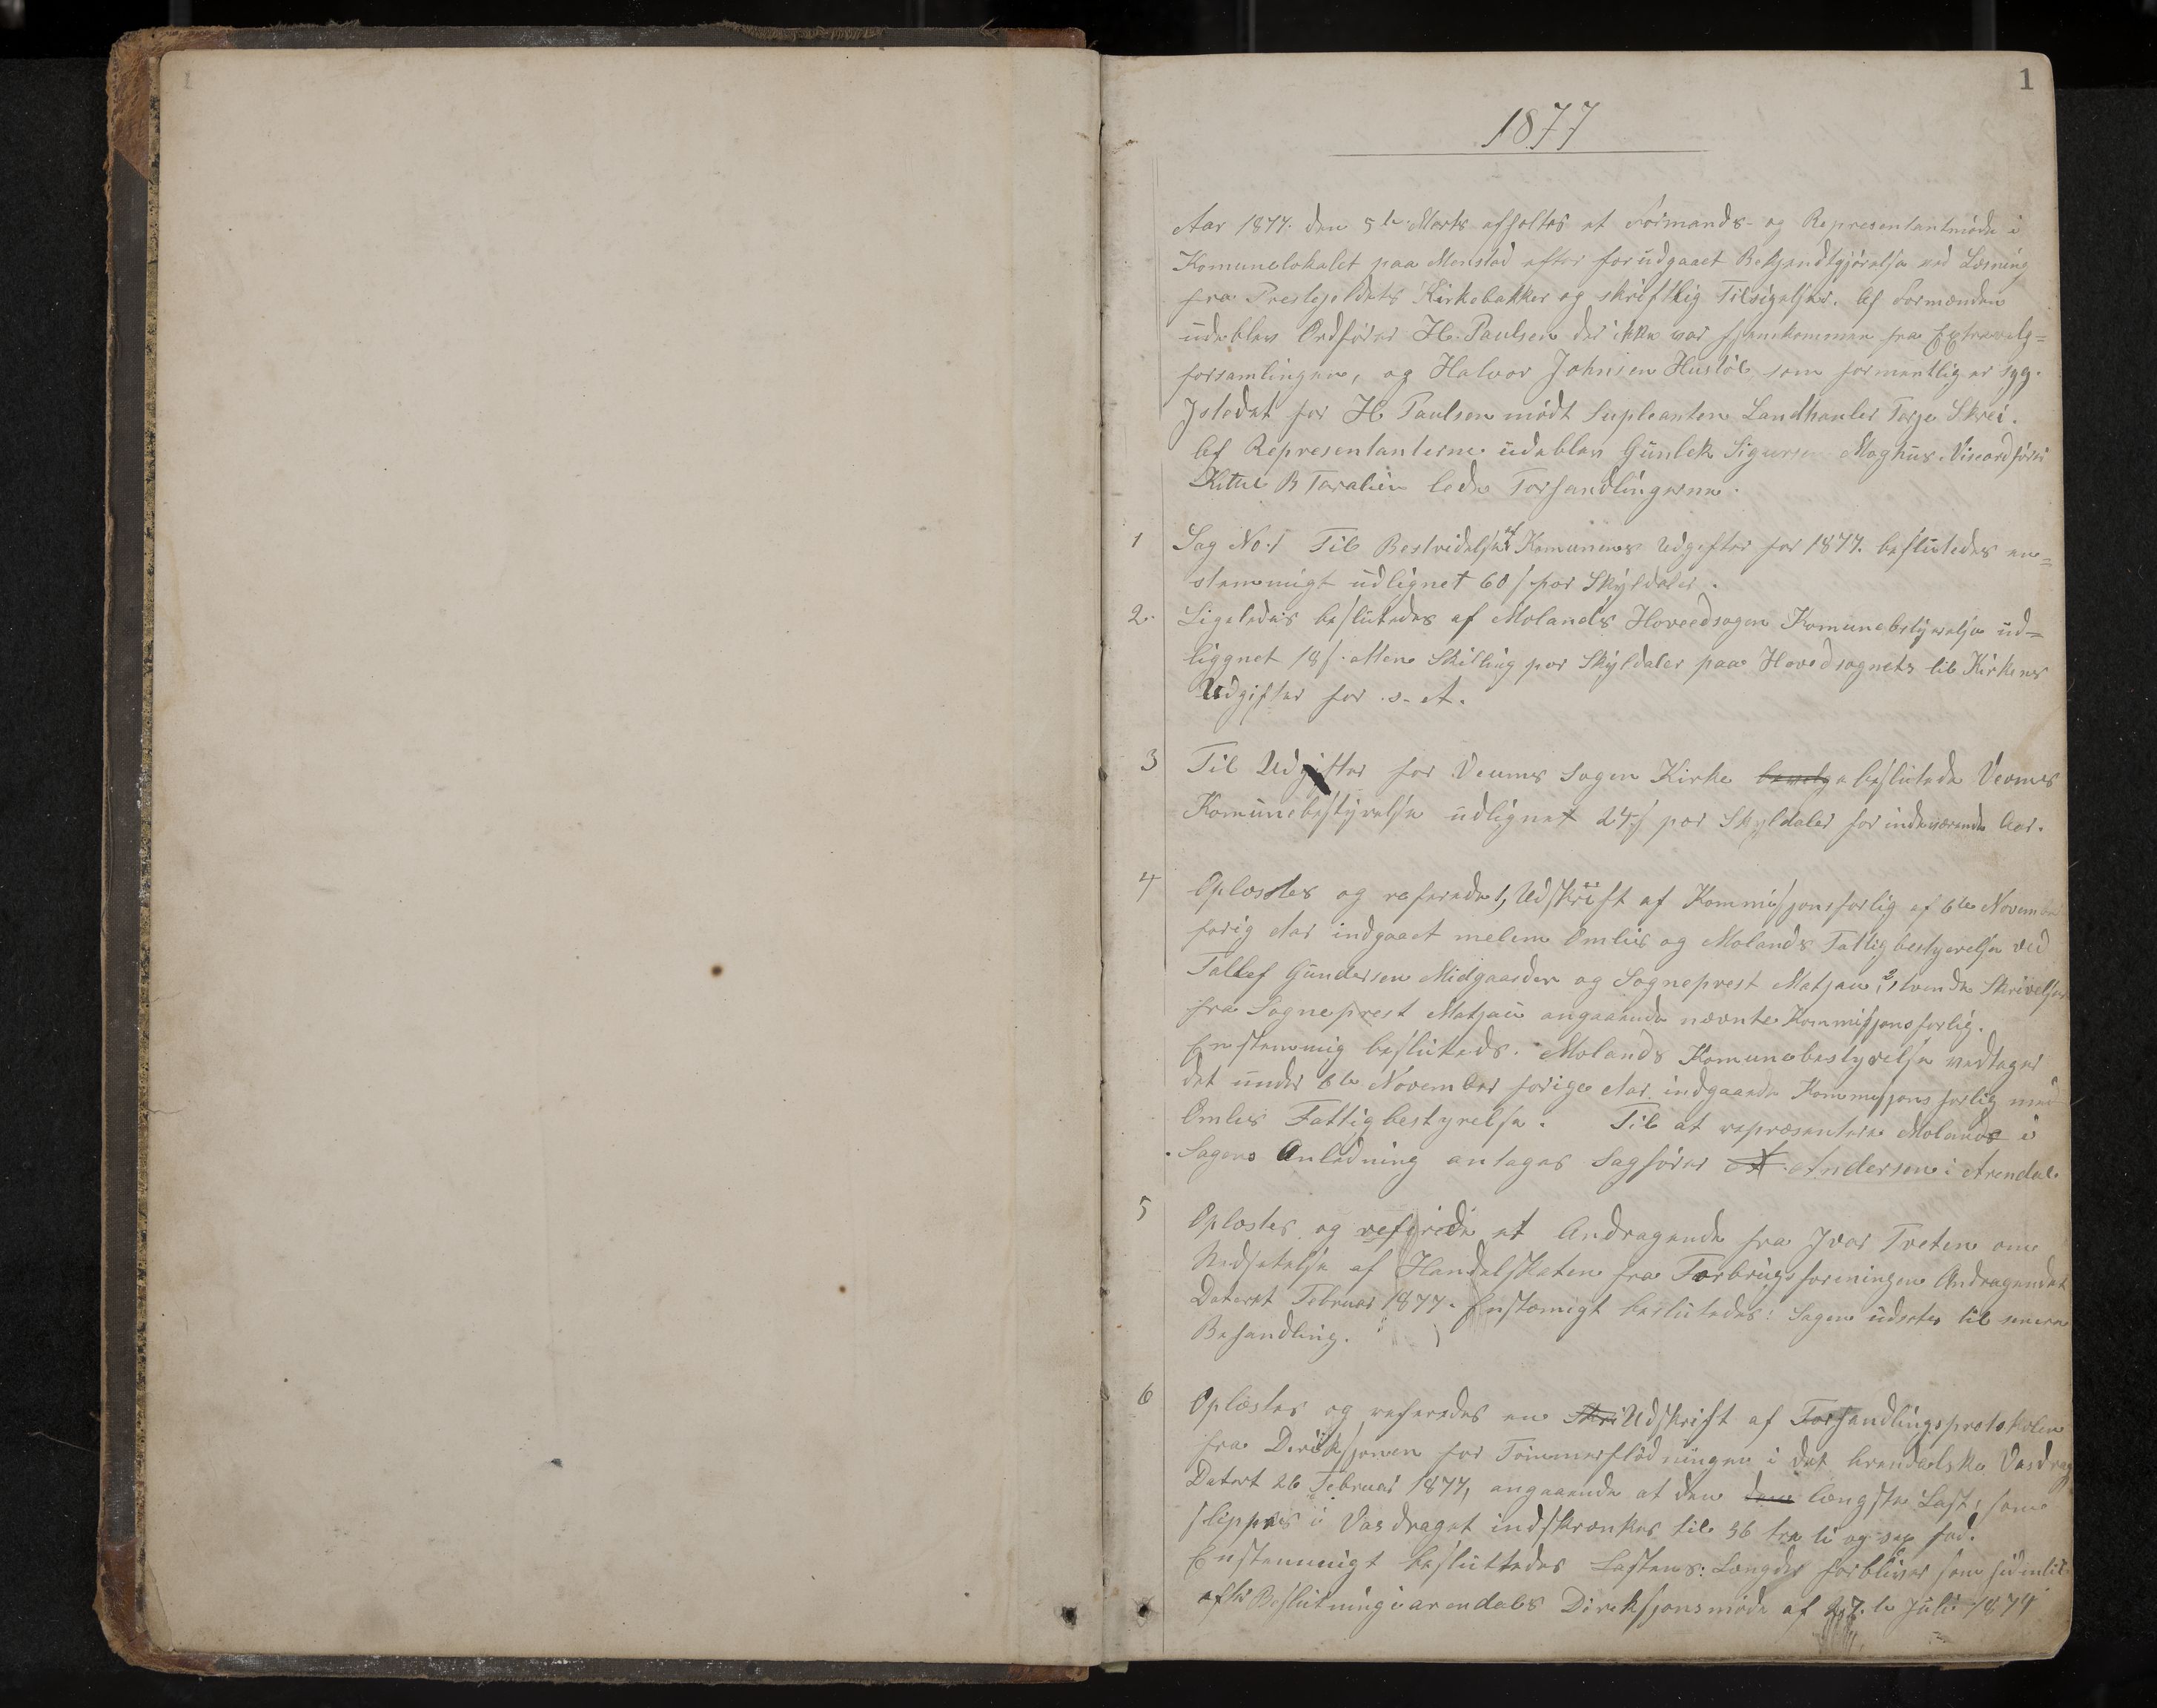 1
1877
Aar 1877. den 5te Marts afholtes et Formands- og Representantmøde i
Komunelokalet paa Monstad efter forudgaaet Bekjendtgjørelse ved Læsning
fra Prestegjeldets Kirkebakker og skriftlig Tilsigelser. Af Formænden
udeblev Ordfører H. Paulsen der ikke var hjemkommen fra Extravalg=
forsamlingen, og Halvor Johnsen som formentlig er syg.
Istedet for H Paulsen mødt Supleanten Landhanler Torje Skrei.
Af Representanterne udeblev Gunlek Sigursen Moghus. Viseordfører
Kittel B Taralien lede Forhandlingerne.
1 Sag No. 1 Til Bestridelse af Komunens Udgifter for 1877. beslutedes en=
stemmigt udlignet 60 s por Skyldaler.
2. Ligeledes beslutedes af Molands Hovedsogen Komunebestyrelse ud=
liggnet 18 s. atten Skilling por Skyldaler paa Hovedsognets til Kirkens
Udgifter for .s. A.
3 Til Udgifter for Veums Sogen Kirke beslutede Veums
Komunebestyrelse udlignet 24 s por Skyldaler for indeværende Aar.
4 Oplæstes og referedet, Udskrift af Kommisjonsforlig af 6te November
forig Aar indgaaet melem Omlis og Molands Fattigbestyrelse ved
Tallef Gundersen Midgaarden og Sogneprest Matjau, 2, tvende Skrivelser
fra Sogneprest Matjau angaaende nævnte Kommisjonsforlig.
Enstemmig besluteds. Molands Komunebestyrelse vedtager
det under 6te November forige Aar. indgaaede Kommisjonsforlig med
Omlis Fattigbestyrelse. Til at repræsentere Molands i
Sagens Anledning antages Sagfører A. Andersen i Arendal.
5 Oplæstes og referede et Andragende fra Ivar Tveten om
Nedsetelse af Handelskaten fra Forbrugsforeningen Andragendet
Dateret Februar 1877. Enstemigt beslutedes: Sagen udsetes til senere
Behandling.
6 Oplæstes og referedes en Udskrift af Forhandlingsprotokolen
fra Direksjonen for Tømmerflødningen i det Arendalske Vasdrag
Datert 26 Februar 1877, angaaende at den længste Last, som
slippes i Vasdraget indskrænkes til 36 tre ti og sex fod.
Enstemmigt besluttedes Lastens: Længder forbliver som hidintil
efter Beslutning i arendals Direksjonsmøde af 27.de Juli 1874